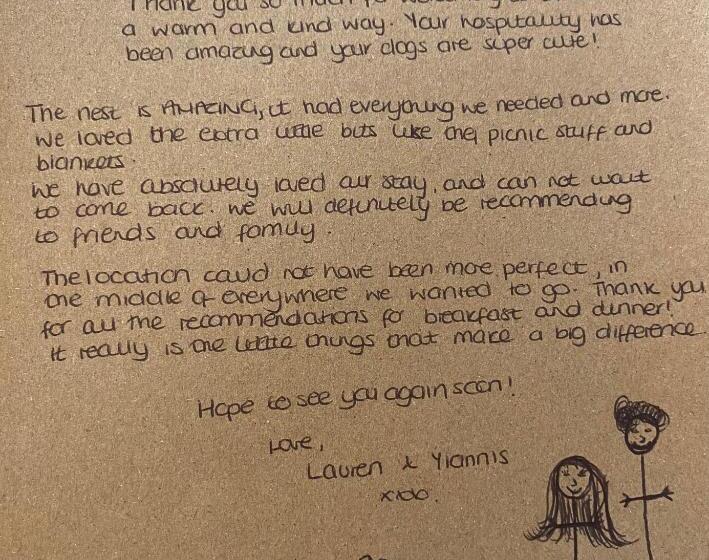 Thank you so much for
a warm and kind way. Your hospitality has
been amazing and your dogs are super cute!
The nest is AMAZING, it had everything we needed and more.
We loved the extra little bits like the picnic stuff and
blankets.
We have absolutely loved our stay, and can not wait
to come back. We will definitely be recommending
to friends and family.
The location could not have been more perfect, in
the middle of everywhere we wanted to go. Thank you
for all the recommendations for breakfast and dinner!
It really is the little things that make a big difference.
Hope to see you again soon!
Love,
Lauren & Yiannis
xxoo.